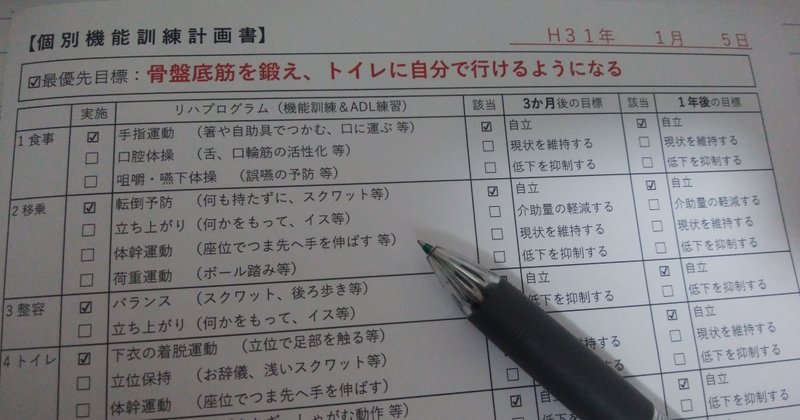 【個別機能訓練計画書】
H31年 1月 5日
☑最優先目標：骨盤底筋を鍛え、トイレに自分で行けるようになる
実施 リハプログラム（機能訓練＆ADL練習） 該当 3か月後の目標 該当 1年後の目標
1食事 ☑ 手指運動 （箸や自助具でつかむ、口に運ぶ 等） ☑ 自立 ☑ 自立
☐ 口腔体操 （舌、口輪筋の活性化 等） ☐ 現状を維持する ☐ 現状を維持する
☐ 咀嚼・嚥下体操 （誤嚥の予防 等） ☐ 低下を抑制する ☐ 低下を抑制する
2移乗 ☑ 転倒予防 （何も持たずに、スクワット等） ☑ 自立 ☑ 自立
☐ 立ち上がり （何かをもって、イス等） ☐ 介助量の軽減する ☐ 介助量の軽減する
☐ 体幹運動 （座位でつま先へ手を伸ばす 等） ☐ 現状を維持する ☐ 現状を維持する
☐ 荷重運動 （ボール踏み等） ☐ 低下を抑制する ☐ 低下を抑制する
3整容 ☑ バランス （スクワット、後ろ歩き等） 自立 ☑ 自立
☐ 立ち上がり （何かをもって、イス等） 低下を抑制する ☐ 低下を抑制する
4トイレ ☑ 下衣の着脱運動 （立位で足部を触る等） ☑ 自立
☐ 立位保持 （お辞儀、浅いスクワット等） 維持する ☐ 現状を維持する
☐ 体幹運動 （座位でつま先へ手を伸ばす） 抑制する ☐ 低下を抑制する
しゃがむ動作 等） ☑ 自 ☑ 自立
☐ 低下を抑制する